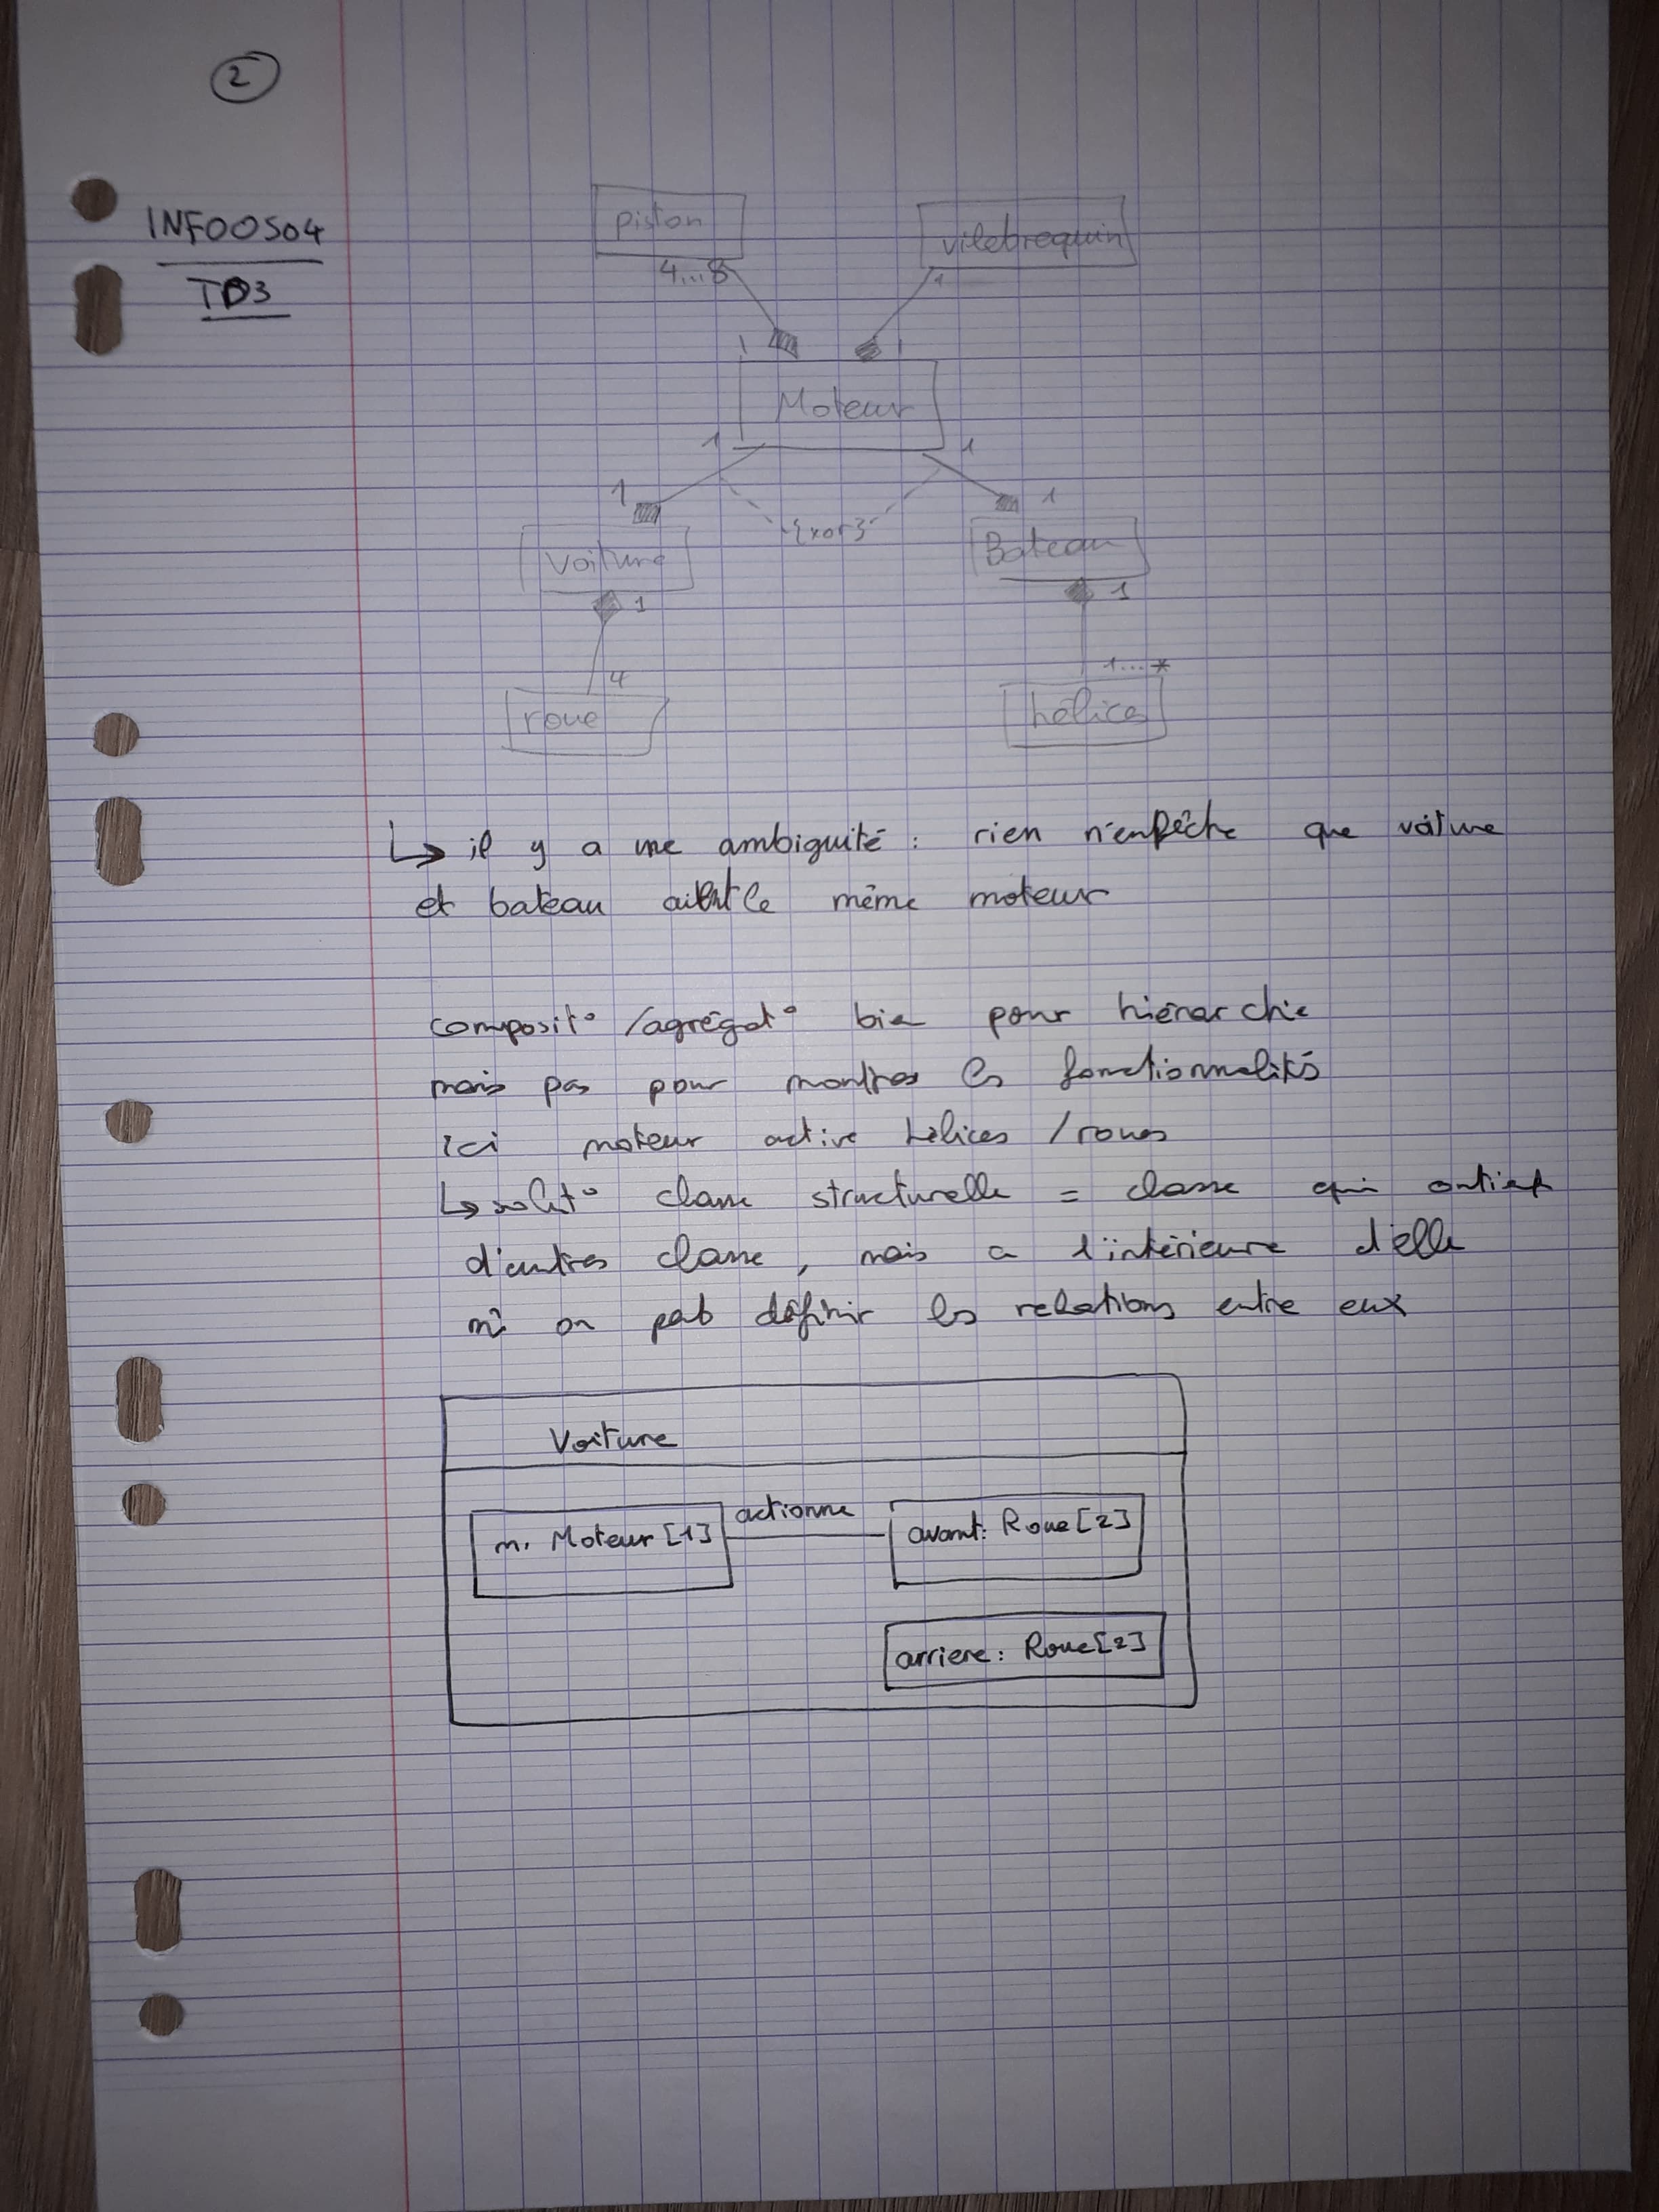 2
INFO0504
TD3
piston
vilebrequin
4...8
1
1
1
Moteur
1
1
1
1
{xor}
Voiture
Bateau
1
1
4
1...*
roue
hélice
↳ il y a une ambiguité : rien n'empêche que voiture
et bateau aient le même moteur
composit° /agrégat° bien pour hiérarchie
mais pas pour montrer les fonctionnalités
ici moteur active hélices /roues
↳ solut° classe structurelle = classe qui contient
d'autres classe, mais a l'intérieure d'elle
m̂ on peut définir les relations entre eux
Voiture
actionne
m. Moteur [1]
avant: Roue [2]
arriere: Roue[2]